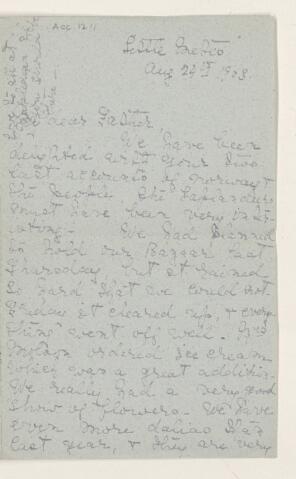 Acc. 1211
Little Metis
Aug 29th 1903.
dear Father,
We have been
delighted with your two
last accounts of Norway &
the people, the Laplanders
must have been very inter-
esting. We had planned
to hold our Bazaar last
Thursday, but it rained
so hard that we could not.
Friday it cleared up, & every-
thing went off well. Mrs
ordered ice cream
which was a great addition.
We really had a very good
show of flowers. We have
even more dalias than
last year, & they are very